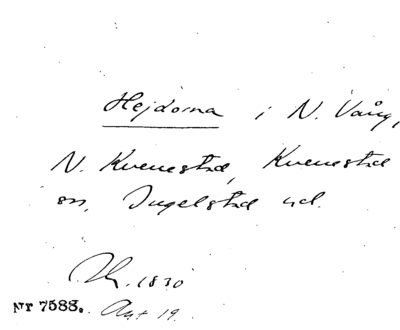 Hejdorna i N. Vång,
N. Kvenestad, Kvenestad
sn, Ingelstad hd.
Th. 1830
Nr 7588. Akt 19.